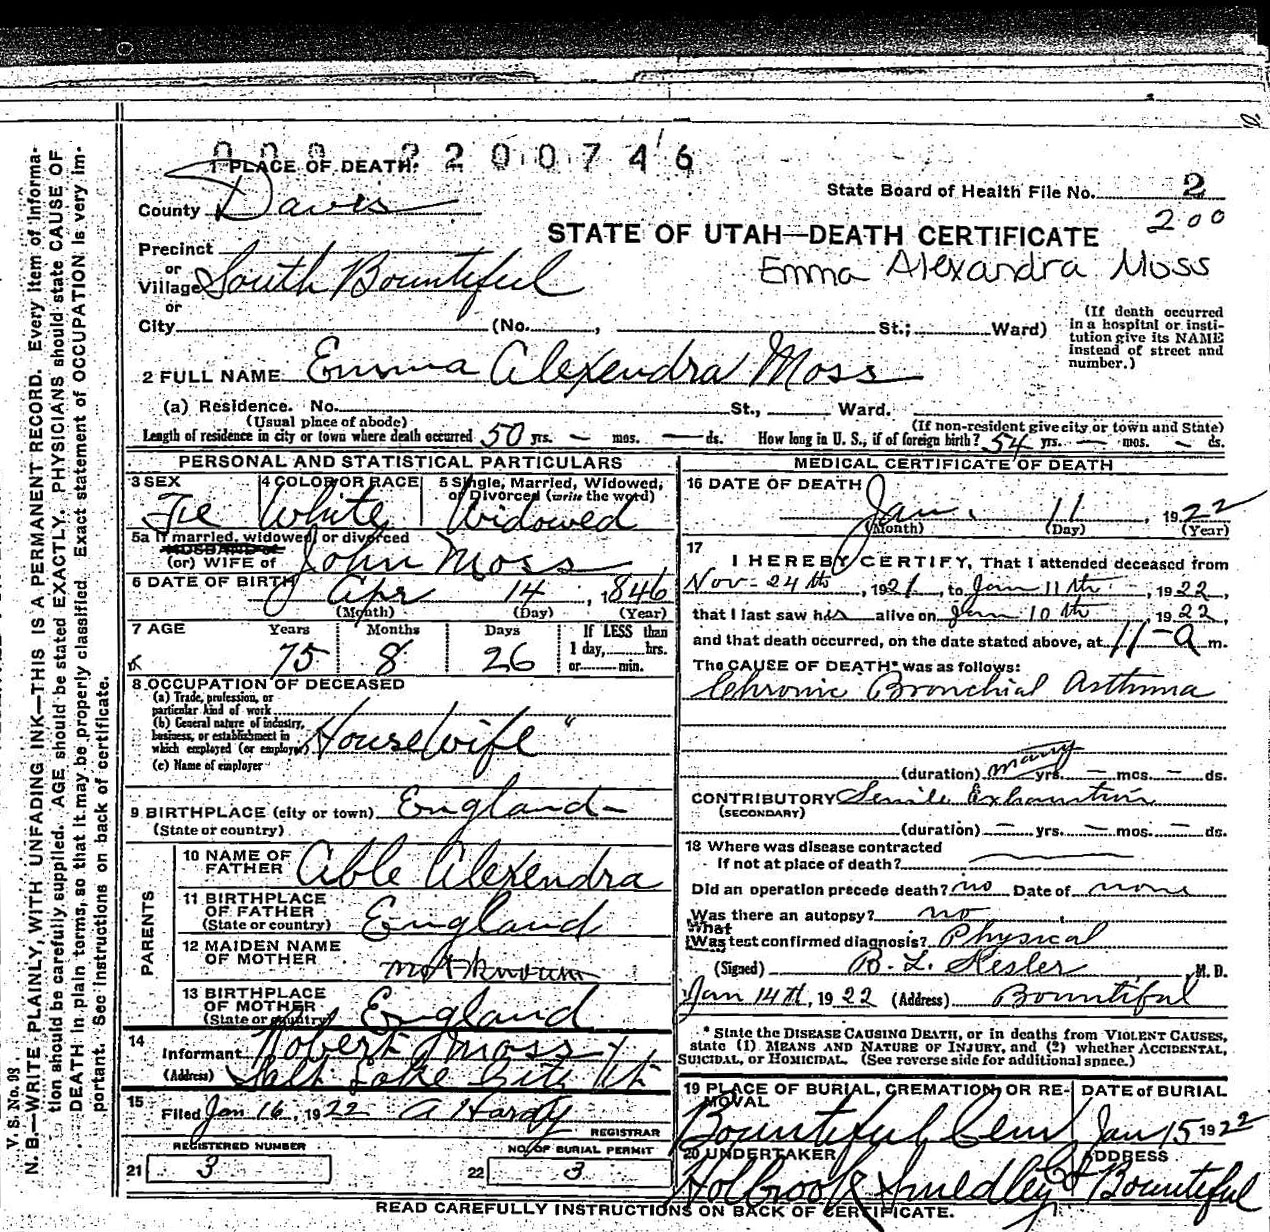 N. B.—WRITE PLAINLY, WITH UNFADING INK—THIS IS A PERMANENT RECORD. Every item of informa-
tion should be carefully supplied. AGE should be stated EXACTLY. PHYSICIANS should state CAUSE OF
DEATH in plain terms, so that it may be properly classified. Exact statement of OCCUPATION is very im-
portant. See instructions on back of certificate.
V. S. No. 98
2200746
1 PLACE OF DEATH:
County Davis
State Board of Health File No. 2
200
STATE OF UTAH—DEATH CERTIFICATE
Emma Alexandra Moss
Precinct
or
Village South Bountiful
or
City (No. , St.; Ward)
(If death occurred
in a hospital or insti-
tution give its NAME
instead of street and
number.)
2 FULL NAME Emma Alexendra Moss
(a) Residence. No. St., Ward.
(Usual place of abode) (If non-resident give city or town and State)
Length of residence in city or town where death occurred 50 yrs. — mos. — ds. How long in U. S., if of foreign birth? 54 yrs. — mos. — ds.
PERSONAL AND STATISTICAL PARTICULARS
3 SEX 4 COLOR OR RACE 5 Single, Married, Widowed,
or Divorced (write the word)
Fe White Widowed
5a If married, widowed, or divorced
HUSBAND of
(or) WIFE of John Moss
6 DATE OF BIRTH Apr 14, 1846
(Month) (Day) (Year)
7 AGE Years Months Days If LESS than
1 day, hrs.
75 8 26 or min.
8 OCCUPATION OF DECEASED
(a) Trade, profession, or
particular kind of work
(b) General nature of industry,
business, or establishment in
which employed (or employer) Housewife "
(c) Name of employer
9 BIRTHPLACE (city or town) England
(State or country)
PARENTS
10 NAME OF
FATHER Able Alexendra
11 BIRTHPLACE
OF FATHER
(State or country) England
12 MAIDEN NAME
OF MOTHER not known
13 BIRTHPLACE
OF MOTHER
(State or country) England
14
Informant Robert Moss
(Address) Salt Lake City Ut
15
Filed Jan 16, 1922 A Hardy
REGISTRAR
REGISTERED NUMBER NO. OF BURIAL PERMIT
21 3 22 3
MEDICAL CERTIFICATE OF DEATH
16 DATE OF DEATH
Jan. 11, 1922
(Month) (Day) (Year)
17
I HEREBY CERTIFY, That I attended deceased from
Nov- 24th, 1921, to Jan 11th, 1922,
that I last saw her alive on Jan 10th 1922,
and that death occurred, on the date stated above, at 11-a m.
The CAUSE OF DEATH* was as follows:
Chronic Bronchial Asthma
(duration) many yrs. — mos. — ds.
CONTRIBUTORY Senile Exhaustion
(SECONDARY)
(duration) — yrs. — mos. — ds.
18 Where was disease contracted
If not at place of death?
Did an operation precede death? no Date of none
Was there an autopsy? no
What
Was test confirmed diagnosis? Physical
(Signed) B. L. Kesler, M. D.
Jan 14th, 1922 (Address) Bountiful
* State the DISEASE CAUSING DEATH, or in deaths from VIOLENT CAUSES,
state (1) MEANS AND NATURE OF INJURY, and (2) whether ACCIDENTAL,
SUICIDAL, or HOMICIDAL. (See reverse side for additional space.)
19 PLACE OF BURIAL, CREMATION, OR RE-
MOVAL DATE OF BURIAL
Bountiful Cem Jan 15 1922
20 UNDERTAKER ADDRESS
Holbrook & Smedley Co Bountiful
READ CAREFULLY INSTRUCTIONS ON BACK OF CERTIFICATE.